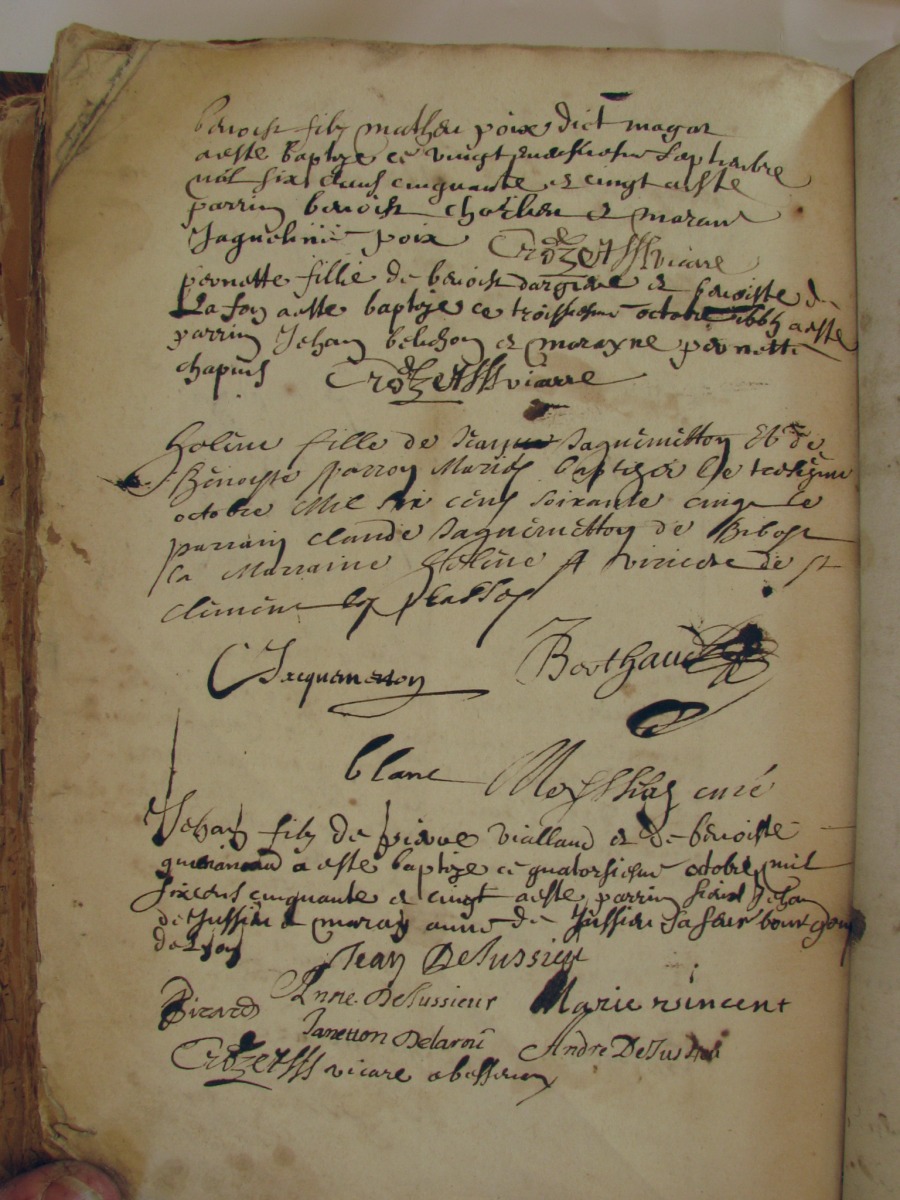 benoist filz mathieu poix dict magat
a esté baptizé ce vingt septembre
mil six cens cinquante et cinq a esté
parrin benoist et maraine
Jaqueline poix Crozet vicare
pernette fille de benoist dargiere et benoiste de
Lafon a esté baptizé ce troissiesme octobre 1665 a esté
parrin Jehan belichon et marayne pernette
chapuis Crozet vicarre
Helène fille de Jaquémètton Et de
Bénoiste Mariés baptizée le treiziéme
octobre Mil six cens soixante cinq le
parrain claude Jaquémètton de Bibost
la Marraine Hélène de st
clément les places
C Jacquemetton Berthaud
blanc curé
Jehan filz de pierre vialland et de benoiste
a esté baptizé ce quatorsiesme octobre mil
sixcens cinquante et cinq a esté parrin sieur Jehan
de Jussieu et anne de Jussieu sa seur bourgeois
de Lyon
Jean DeJussieu
Pirard Anne DeJussieux Marie vincent
Janetton Delaroü Andre DeJussieu
Crozet vicare a bessenay